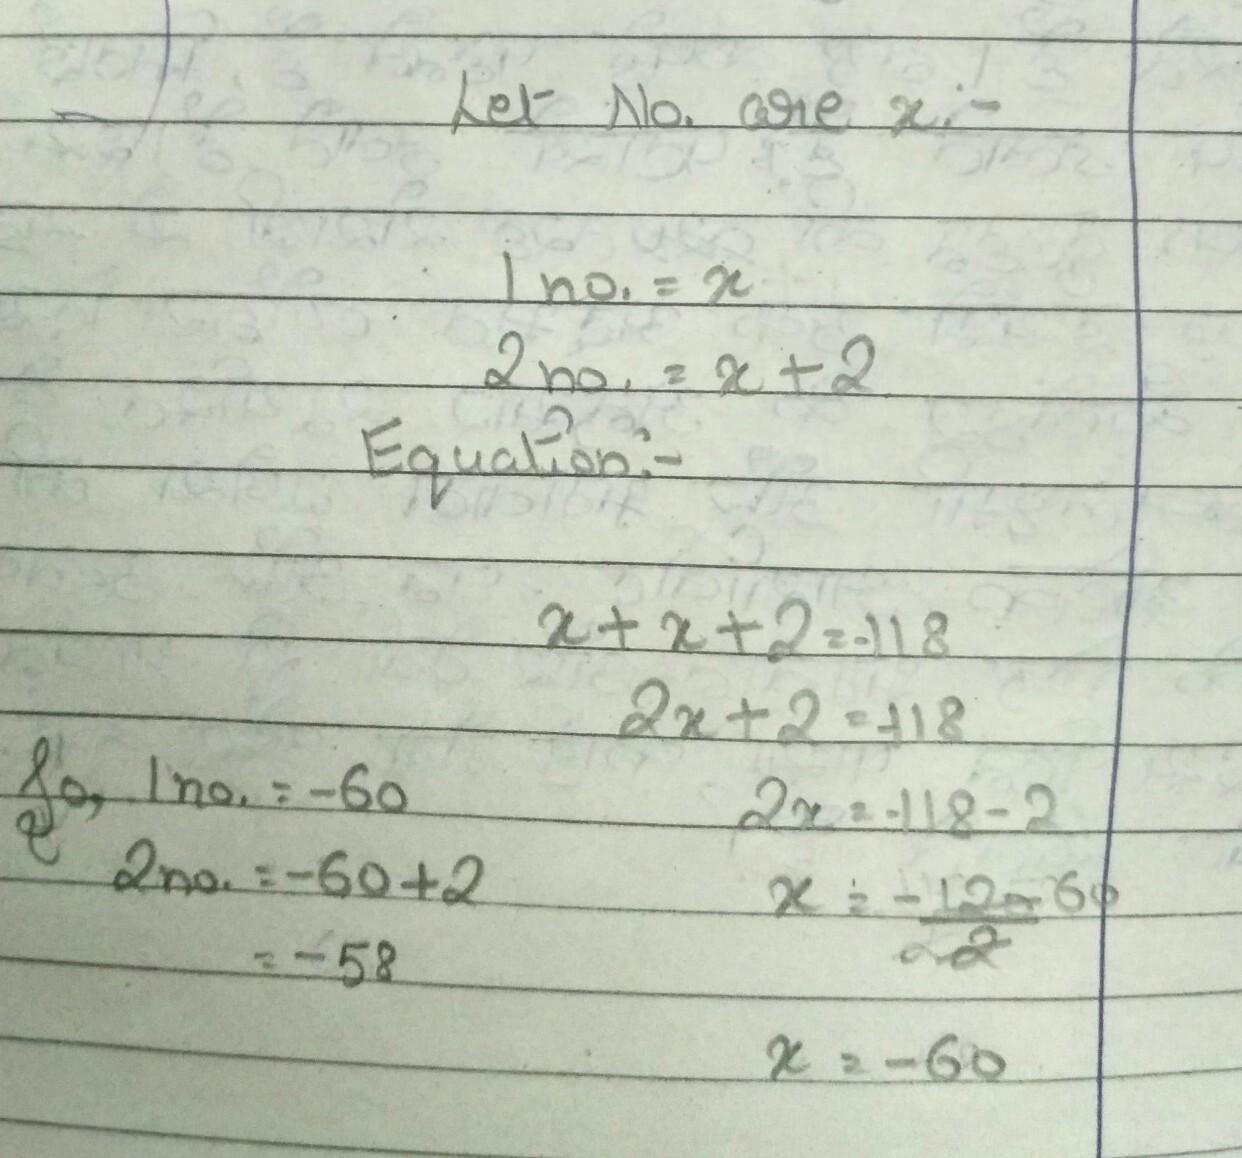 Let No. are x:-
1 no. = x
2 no. = x + 2
Equation:-
x + x + 2 = -118
2x + 2 = -118
2x = -118 - 2
x = -120 - 60
2
x = -60
So, 1 no. = -60
2 no. = -60 + 2
= -58